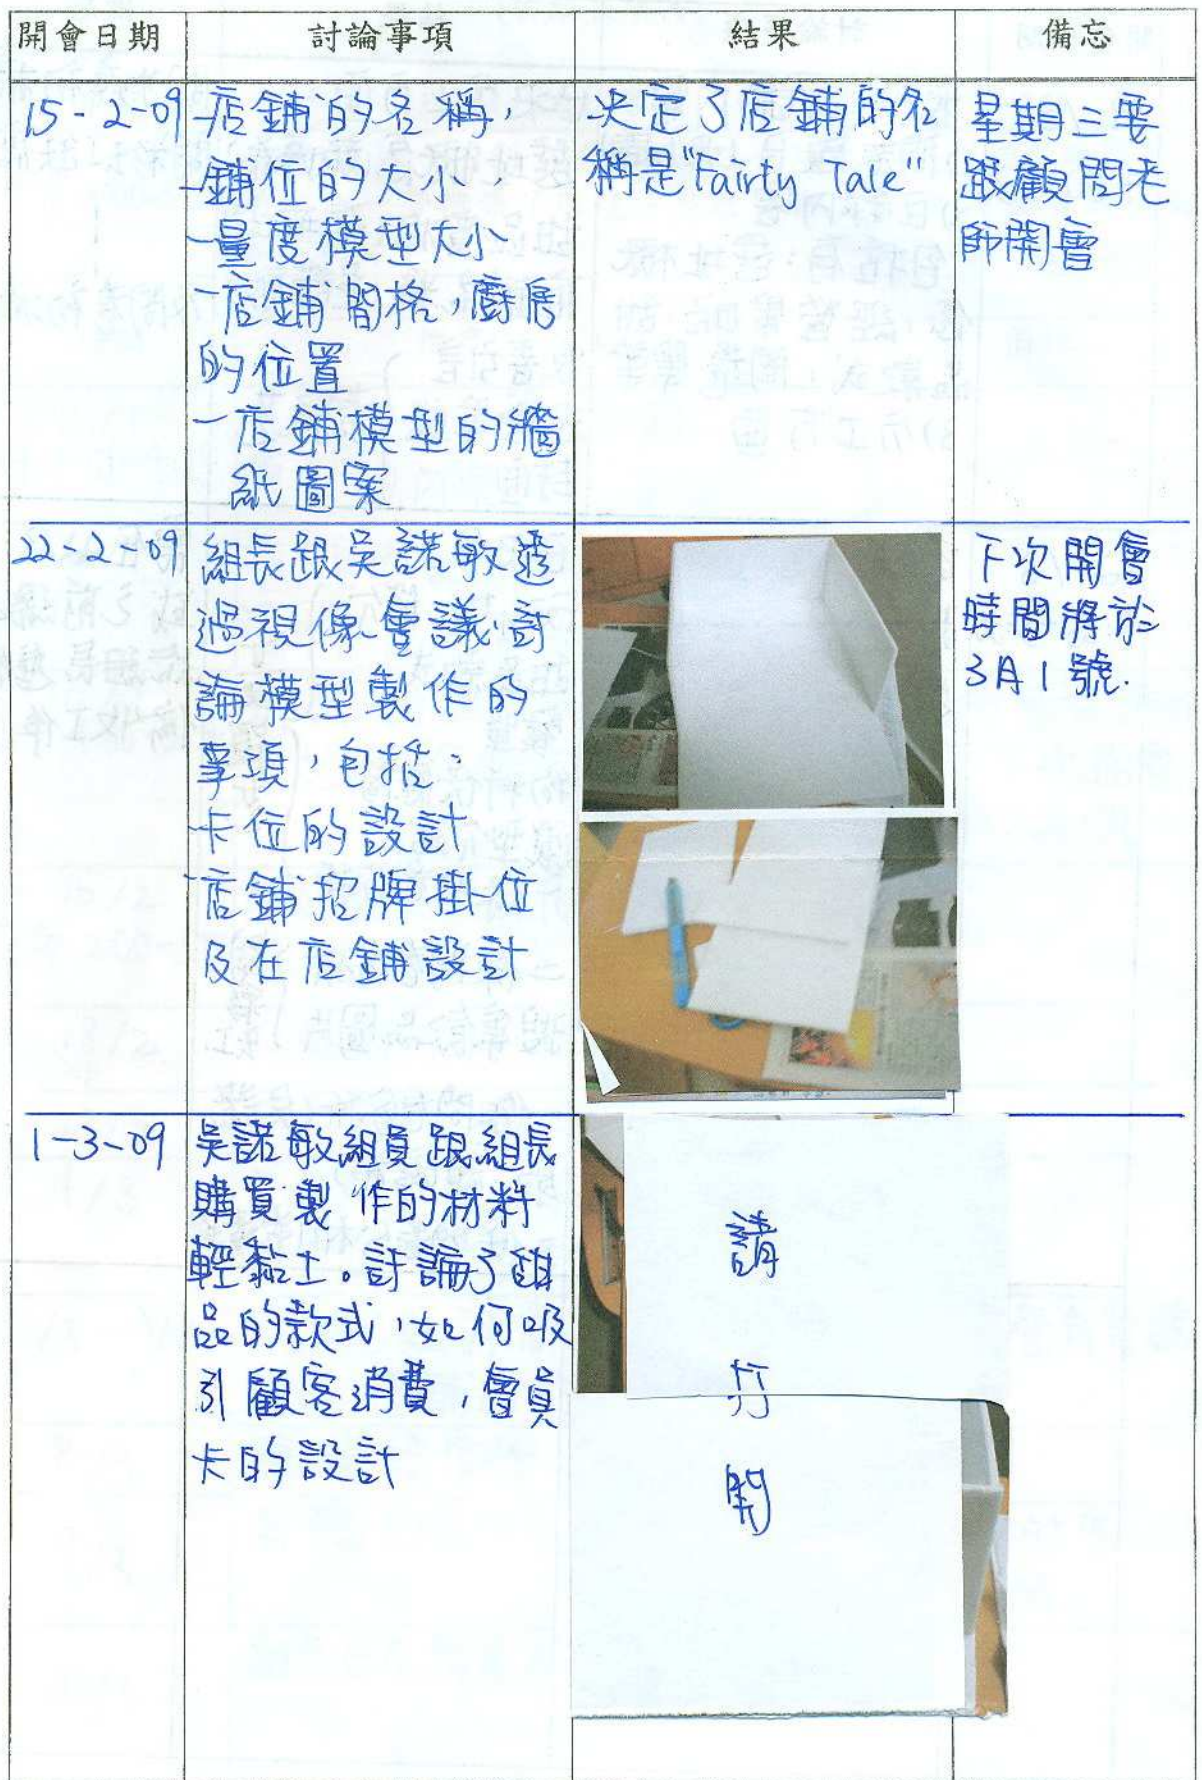 開會日期
討論事項
結果
備忘
15-2-09
-店鋪的名稱，
-鋪位的大小，
-量度模型大小
-店鋪間格，廚房
的位置
-店鋪模型的牆
紙圖案
決定了店鋪的名
稱是"Fairty Tale"
星期三要
跟顧問老
師開會
22-2-09
組長跟吳諾敏透
過視像會議討
論模型製作的
事項，包括：
-卡位的設計
-店鋪招牌掛位
及在店鋪設計
下次開會
時間將於
3月1號.
1-3-09
吳諾敏組員跟組長
購買製作的材料
輕黏土。討論了甜
品的款式，如何吸
引顧客消費，會員
卡的設計
請
打
開